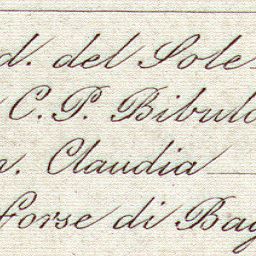 d. del Sole
C. P. Bibulo
n. Claudia
forse di Bag